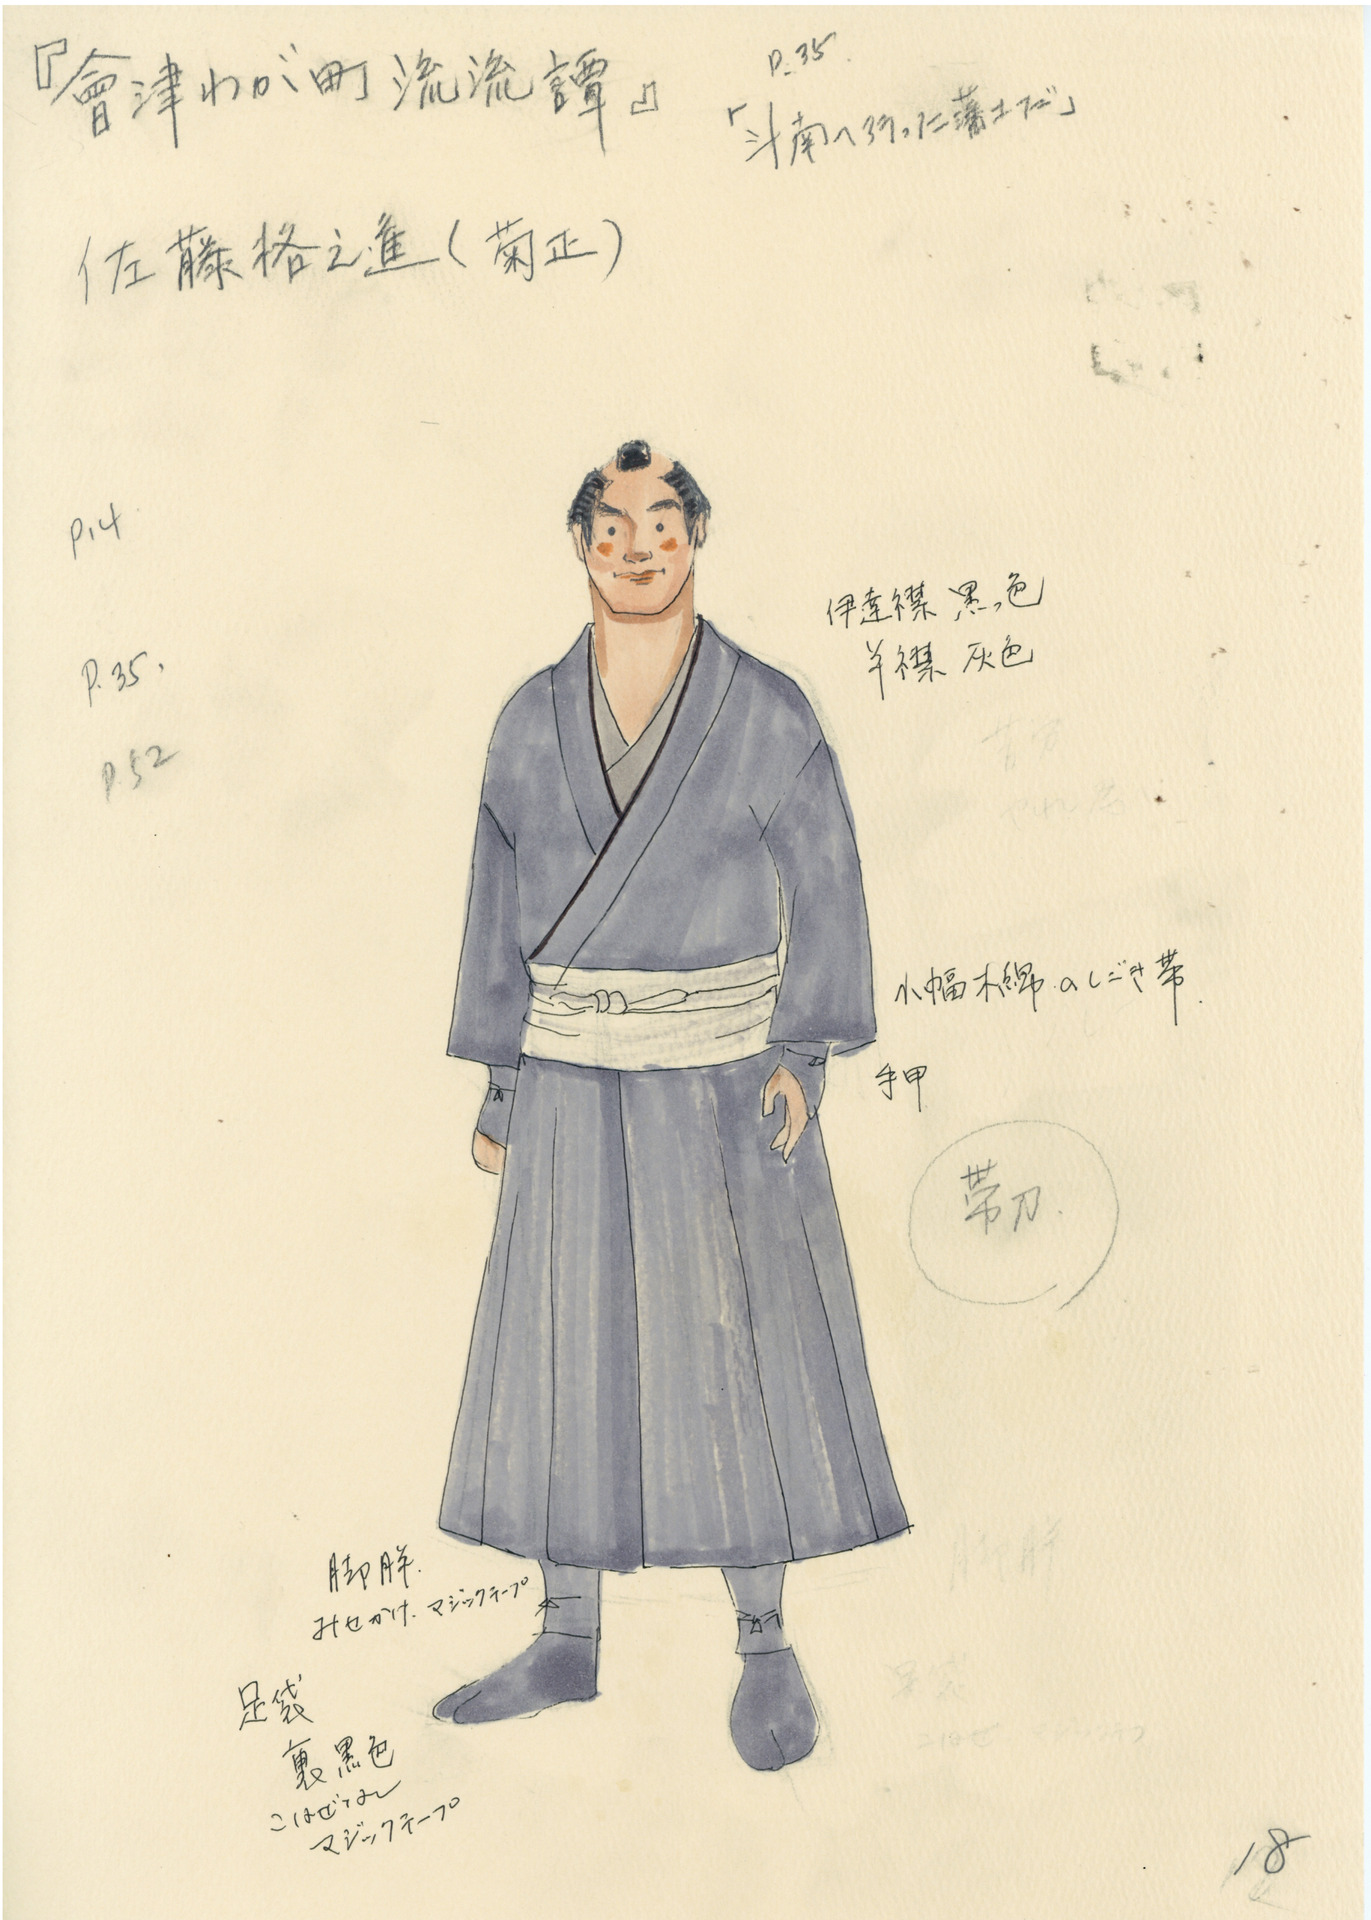 『會津わが町流流譚』
P.35.
「斗南へ行った藩士だ」
佐藤格之進(菊正)
P.14
P.35.
P.52
伊達襟 黒色
半襟 灰色
小幅木綿のしごき帯.
手甲
帯刀.
脚胖.
みせかけ.マジックテープ
足袋
裏黒色
こはぜなし
マジックテープ
18